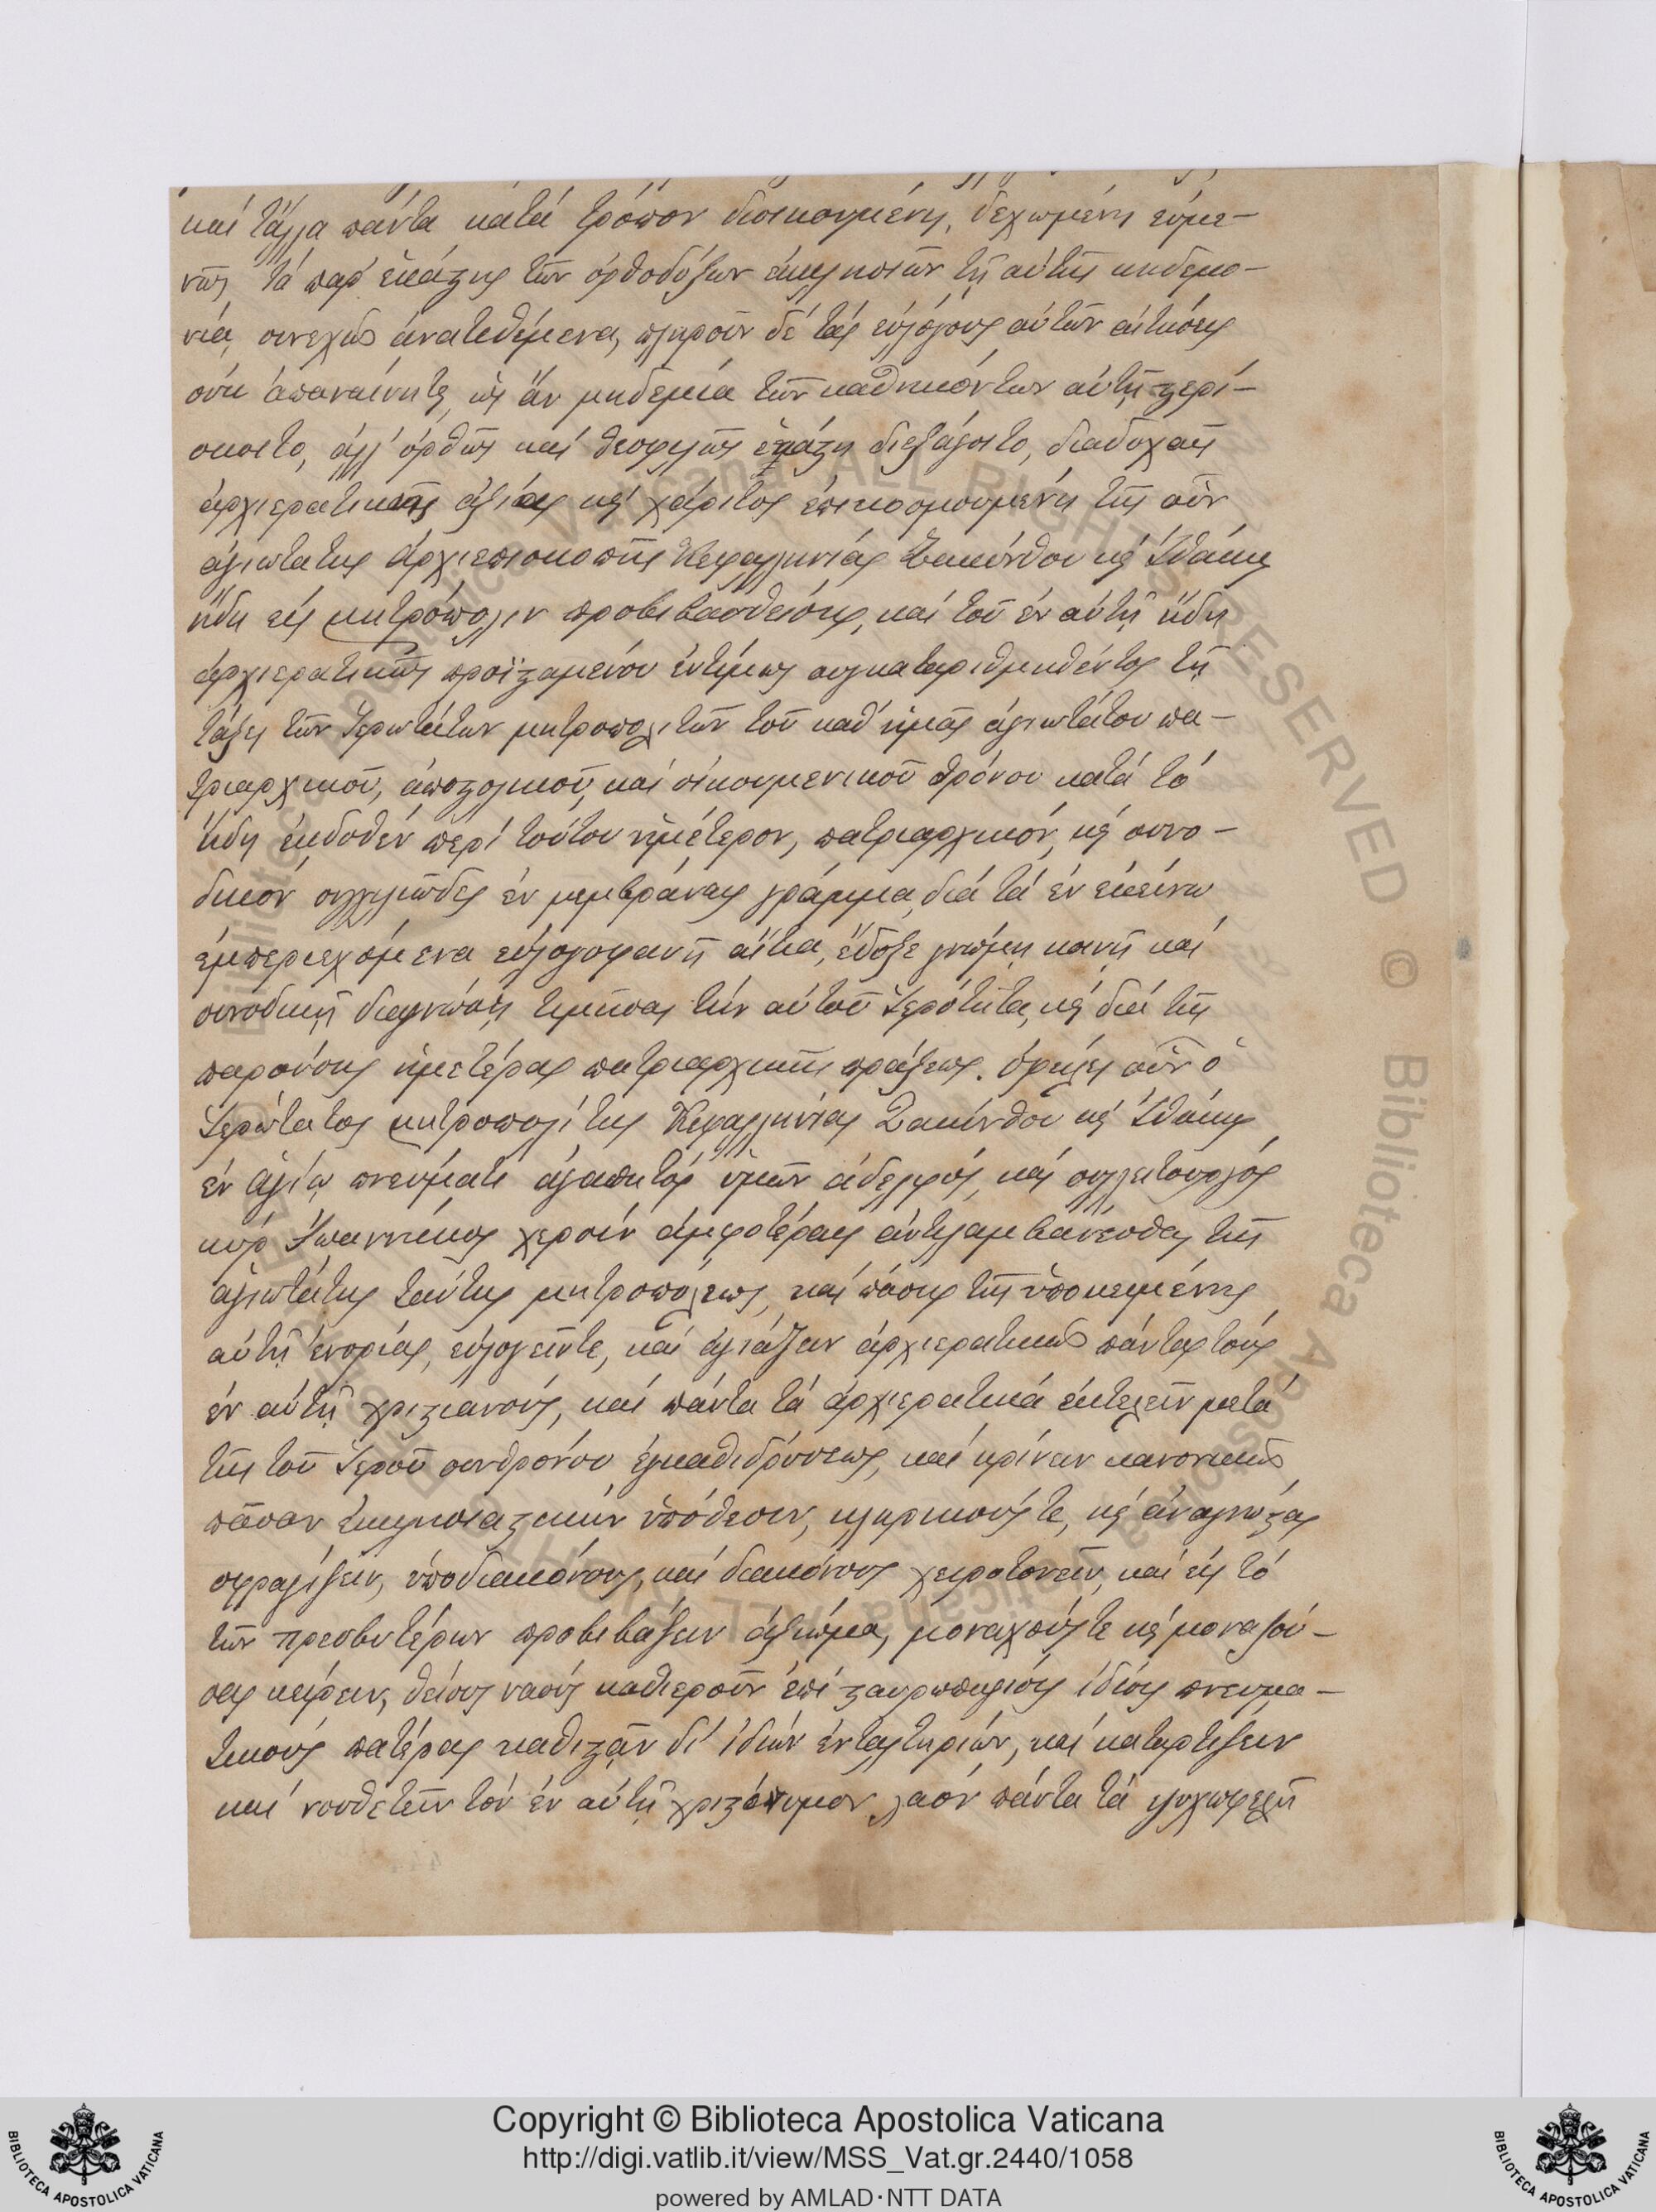 καὶ τἄλλα πάντα κατὰ τρόπον διοικουμένη, δεχωμένη εὐμε-
νῶς τὰ παρ' ἑκάστης τῶν ὀρθοδόξων ἐκκλησιῶν τῇ αὐτῆς κηδεμο-
νίᾳ συνεχῶς ἀνατεθέμενα, πληροῦν δὲ τὰς εὐλόγους αὐτῶν αἰτήσεις
οὐκ ἀπαναίνηται, ὡς ἂν μηδεμία τῶν καθηκόντων αὐτῇ στερί-
σκοιτο, ἀλλ' ὀρθῶς καὶ θεοφιλῶς ἑκάστη διεξάγοιτο, διαδοχαῖς
ἀρχιερατικαῖς ἀξίας κὶ χάριτος ἐπικοσμουμένη τῆς οὖν
ἁγιωτάτης ἀρχιεπισκοπῆς Κεφαλληνίας Ζακύνθου κὶ Ἰθάκης
ἤδη εἰς μητρόπολιν προβιβασθείσης, καὶ τοῦ ἐν αὐτῇ ἤδη
ἀρχιερατικῶς προϊσταμένου ἐντίμως συγκαταριθμηθέντος τῇ
τάξει τῶν Ἱερωτάτων μητροπολιτῶν τοῦ καθ' ἡμᾶς ἁγιωτάτου πα-
τριαρχικοῦ, ἀποστολικοῦ, καὶ οἰκουμενικοῦ θρόνου κατὰ τὸ
ἤδη ἐκδοθὲν περὶ τούτου ἡμέτερον, πατριαρχικὸν, κὶ συνο-
δικὸν συγγιλιῶδες ἐν μεμβράναις γράμμα, διὰ τὰ ἐν ἐκείνω
ἐμπεριεχόμενα εὐλογοφανῆ αἴτια, ἔδοξε γνώμῃ κοινῇ καὶ
συνοδικῇ διαγνώσει τιμῆσαι τὴν αὐτοῦ Ἱερότητα, κὶ διὰ τῆς
παρούσης ἡμετέρας πατριαρχικῆς πράξεως. ὀφείλει οὖν ὁ
Ἱερώτατος μητροπολίτης Κεφαλληνίας Ζακύνθου κὶ Ἰθάκης,
ἐν ἁγίῳ πνεύματι ἀγαπητὸς ἡμῶν ἀδελφὸς, καὶ συλλειτουργὸς
κὺρ Ἰωαννίκιος χερσὶν ἀμφοτέραις ἀντιλαμβάνεσθαι τῆς
ἁγιωτάτης ταύτης μητροπόλεως, καὶ πάσης τῆς ὑποκειμένης
αὐτῇ ἐνορίας, εὐλογεῖντε, καὶ ἁγιάζειν ἀρχιερατικῶς πάντας τοὺς
ἐν αὐτῇ χριστιανοὺς, καὶ πάντα τὰ ἀρχιερατικὰ ἐκτελεῖν μετὰ
τῆς τοῦ Ἱεροῦ συνθρόνου ἐγκαθιδρύσεως, καὶ κρίνειν κανονικῶς
πᾶσαν ἐκκλησιαστικὴν ὑπόθεσιν, κληρικούς τε, κὶ ἀναγνώστας
σφραγίζειν, ὑποδιακόνους, καὶ διακόνους χειροτονεῖν, καὶ εἰς τὸ
τῶν πρεσβυτέρων προβιβάζειν ἀξίωμα, μοναχούς τε κὶ μοναζού-
σας κείρειν, θείους ναοὺς καθιεροῦν ἐπὶ σταυροπηγίοις ἰδίοις πνευμα-
τικοὺς πατέρας καθιστᾶν δι' ἰδίων ἐνταλτηρίων, καὶ καταρτίζειν
καὶ νουθετεῖν τὸν ἐν αὐτῇ χριστώνυμον λαὸν πάντα τὰ ψυχωφελῆ
Copyright © Biblioteca Apostolica Vaticana
http://digi.vatlib.it/view/MSS_Vat.gr.2440/1058
powered by AMLAD·NTT DATA